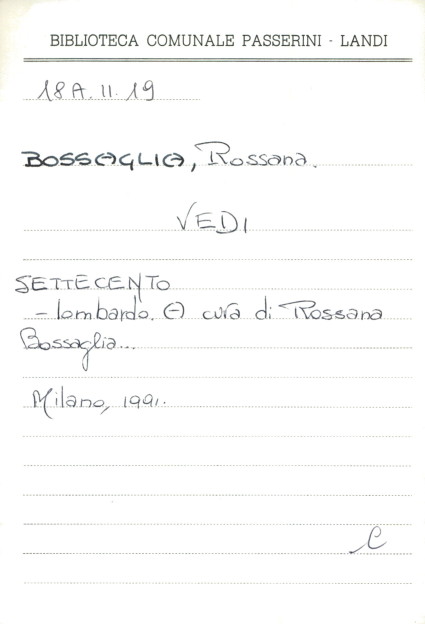 BIBLIOTECA COMUNALE PASSERINI - LANDI
18 A. II. 19
BOSSAGLIA, Rossana.
VEDI
SETTECENTO
- lombardo. A cura di Rossana
Bossaglia...
Milano, 1991.
C